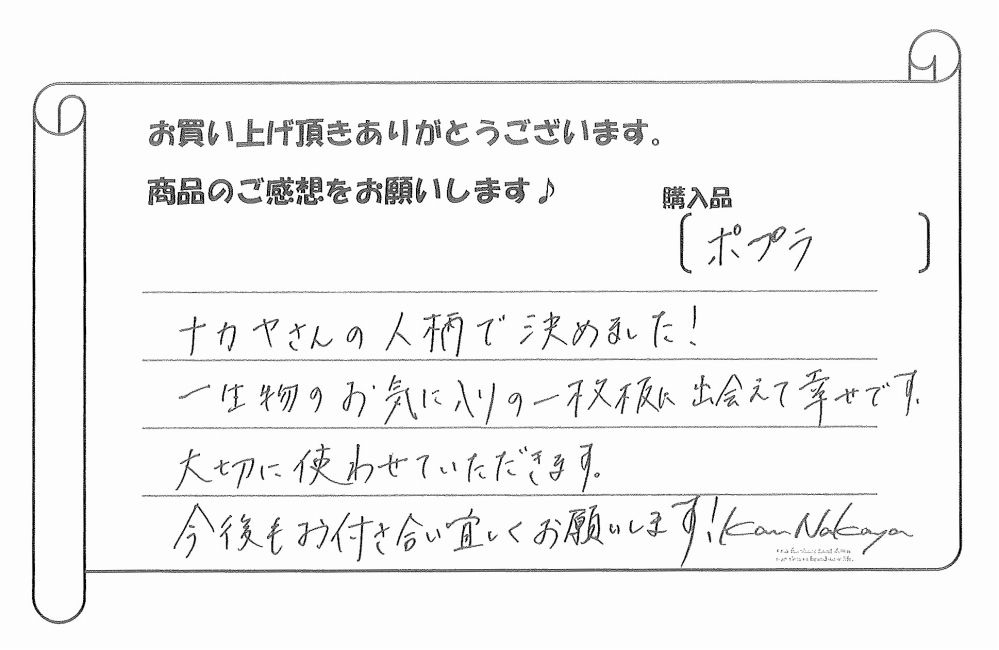 お買い上げ頂きありがとうございます。
商品のご感想をお願いします♪
購入品
〔ポプラ〕
ナカヤさんの人柄で決めました!
一生物のお気に入りの一枚板に出会えて幸せです。
大切に使わせていただきます。
今後もお付き合い宜しくお願いします!
Kan Nakaya